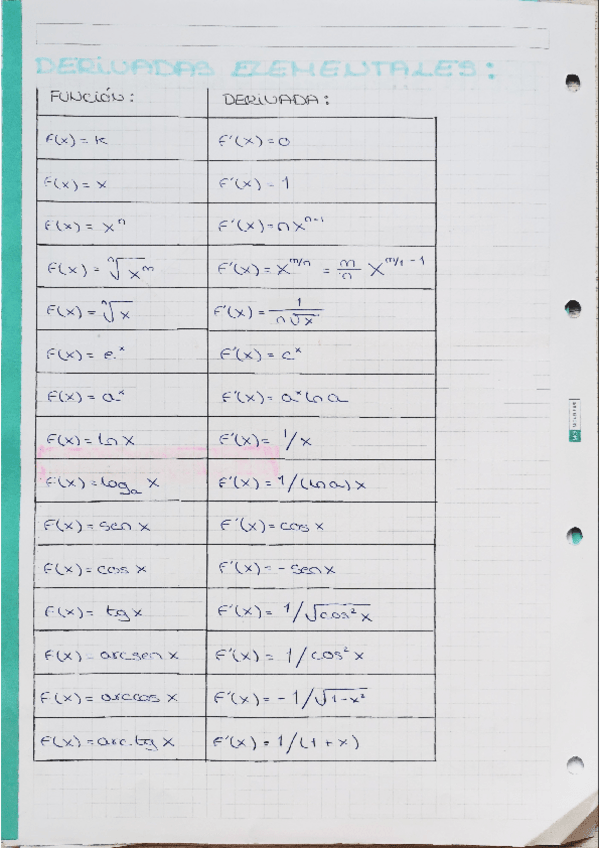 DERIVADAS ELEMENTALES:
FUNCIÓN: DERIVADA:
F(x) = k F'(x) = 0
F(x) = x F'(x) = 1
F(x) = xⁿ F'(x) = n xⁿ⁻¹
F(x) = ⁿ√xᵐ F'(x) = x^(m/n) = m/n x^(m/n - 1)
F(x) = ⁿ√x F'(x) = 1/(n√x)
F(x) = e.ˣ F'(x) = e.ˣ
F(x) = aˣ F'(x) = aˣ ln a
F(x) = ln x F'(x) = 1/x
F(x) = logₐ x F'(x) = 1/(ln a) x
F(x) = sen x F'(x) = cos x
F(x) = cos x F'(x) = - sen x
F(x) = tg x F'(x) = 1/√cos² x
F(x) = arcsen x F'(x) = 1/cos² x
F(x) = arccos x F'(x) = - 1/√1-x²
F(x) = arc.tg x F'(x) = 1/(1 + x)